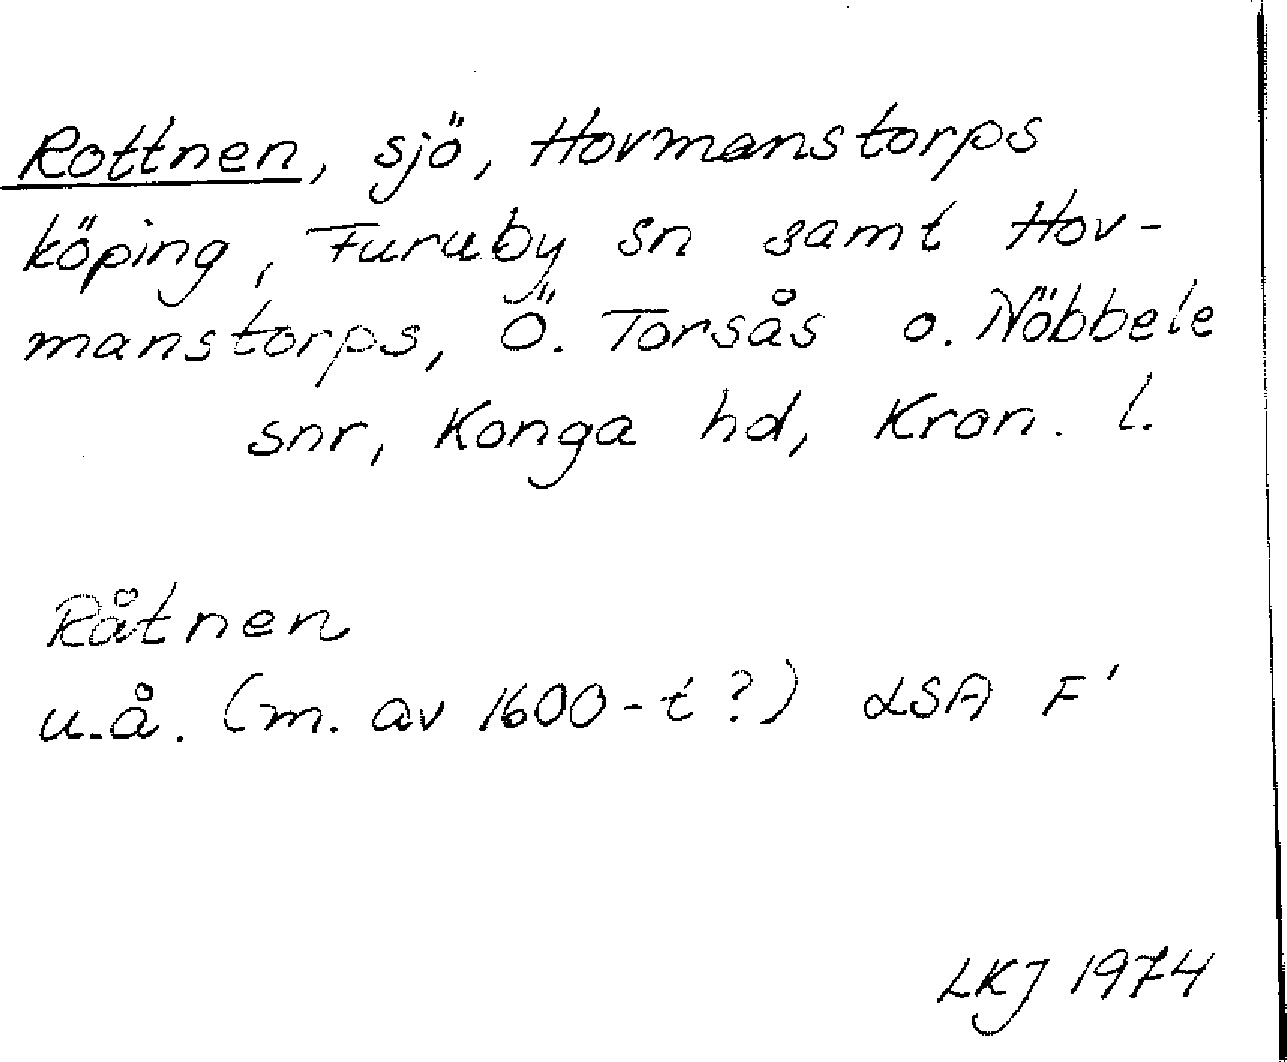 Rottnen, sjö, Hovmanstorps
köping, Furuby sn samt Hov-
manstorps, Ö. Torsås o. Nöbbele
snr, Konga hd, Kron. l.
Råtnen
u.å. (m. av 1600-t?) LSA F'
LKJ 1974